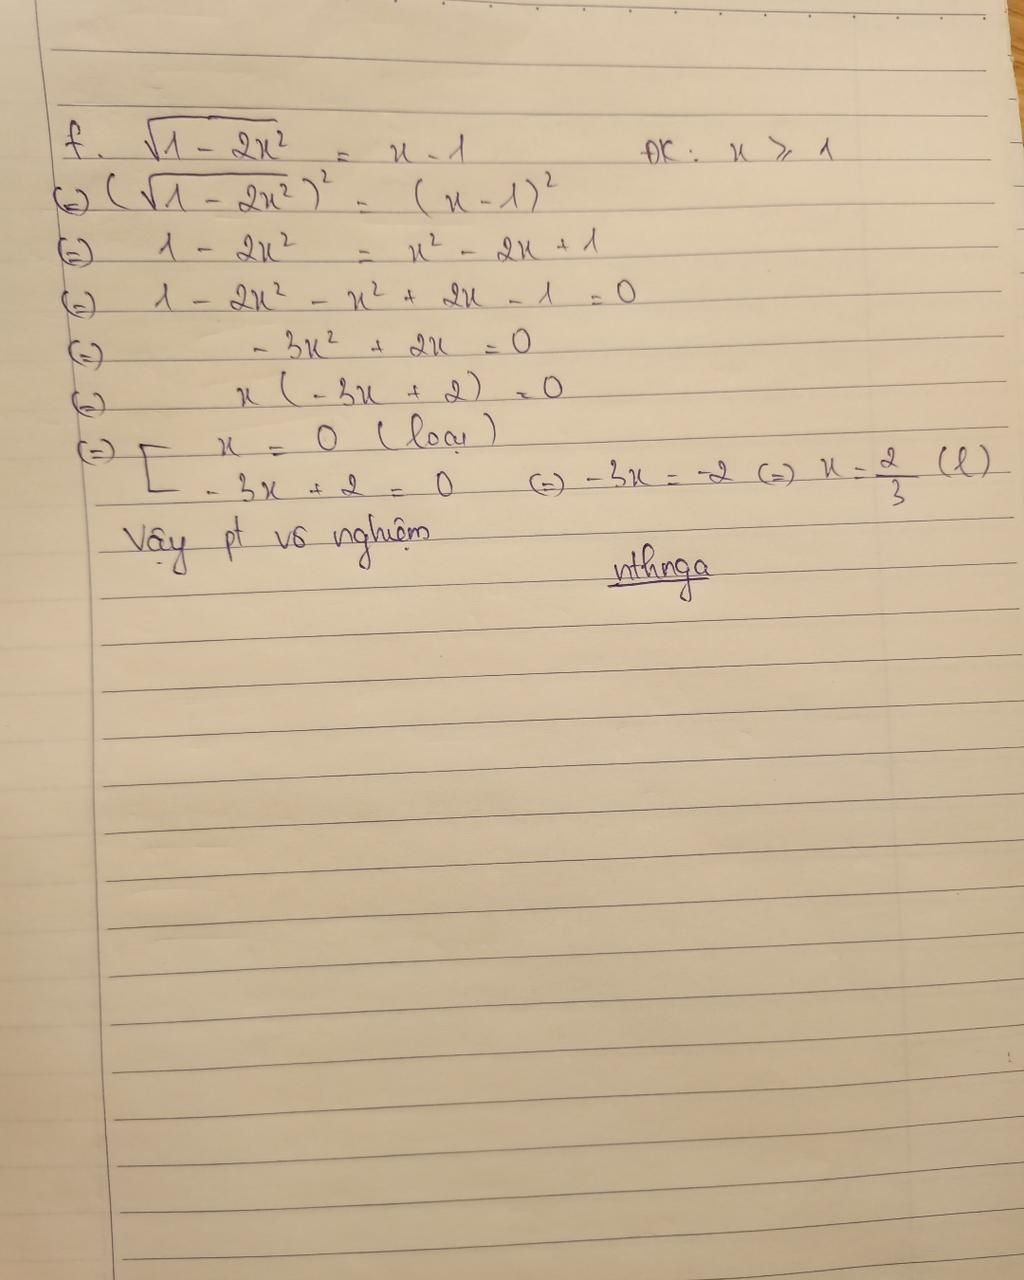 f. √(1 - 2x²) = x - 1 ĐK: x ⩾ 1
(=) (√(1 - 2x²))² = (x - 1)²
(=) 1 - 2x² = x² - 2x + 1
(=) 1 - 2x² - x² + 2x - 1 = 0
(=) - 3x² + 2x = 0
(=) x (- 3x + 2) = 0
(=) [ x = 0 (loại)
- 3x + 2 = 0 (=) - 3x = -2 (=) x = 2/3 (l)
Vậy pt vô nghiệm
nthnga